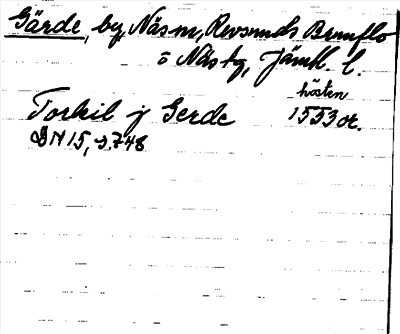 Gärde, by, Näs sn, Revsunds Brunflo
o Näs tg, Jämtl. l.
hösten
Torkil j Gerde 1553 or.
DN 15, s. 748